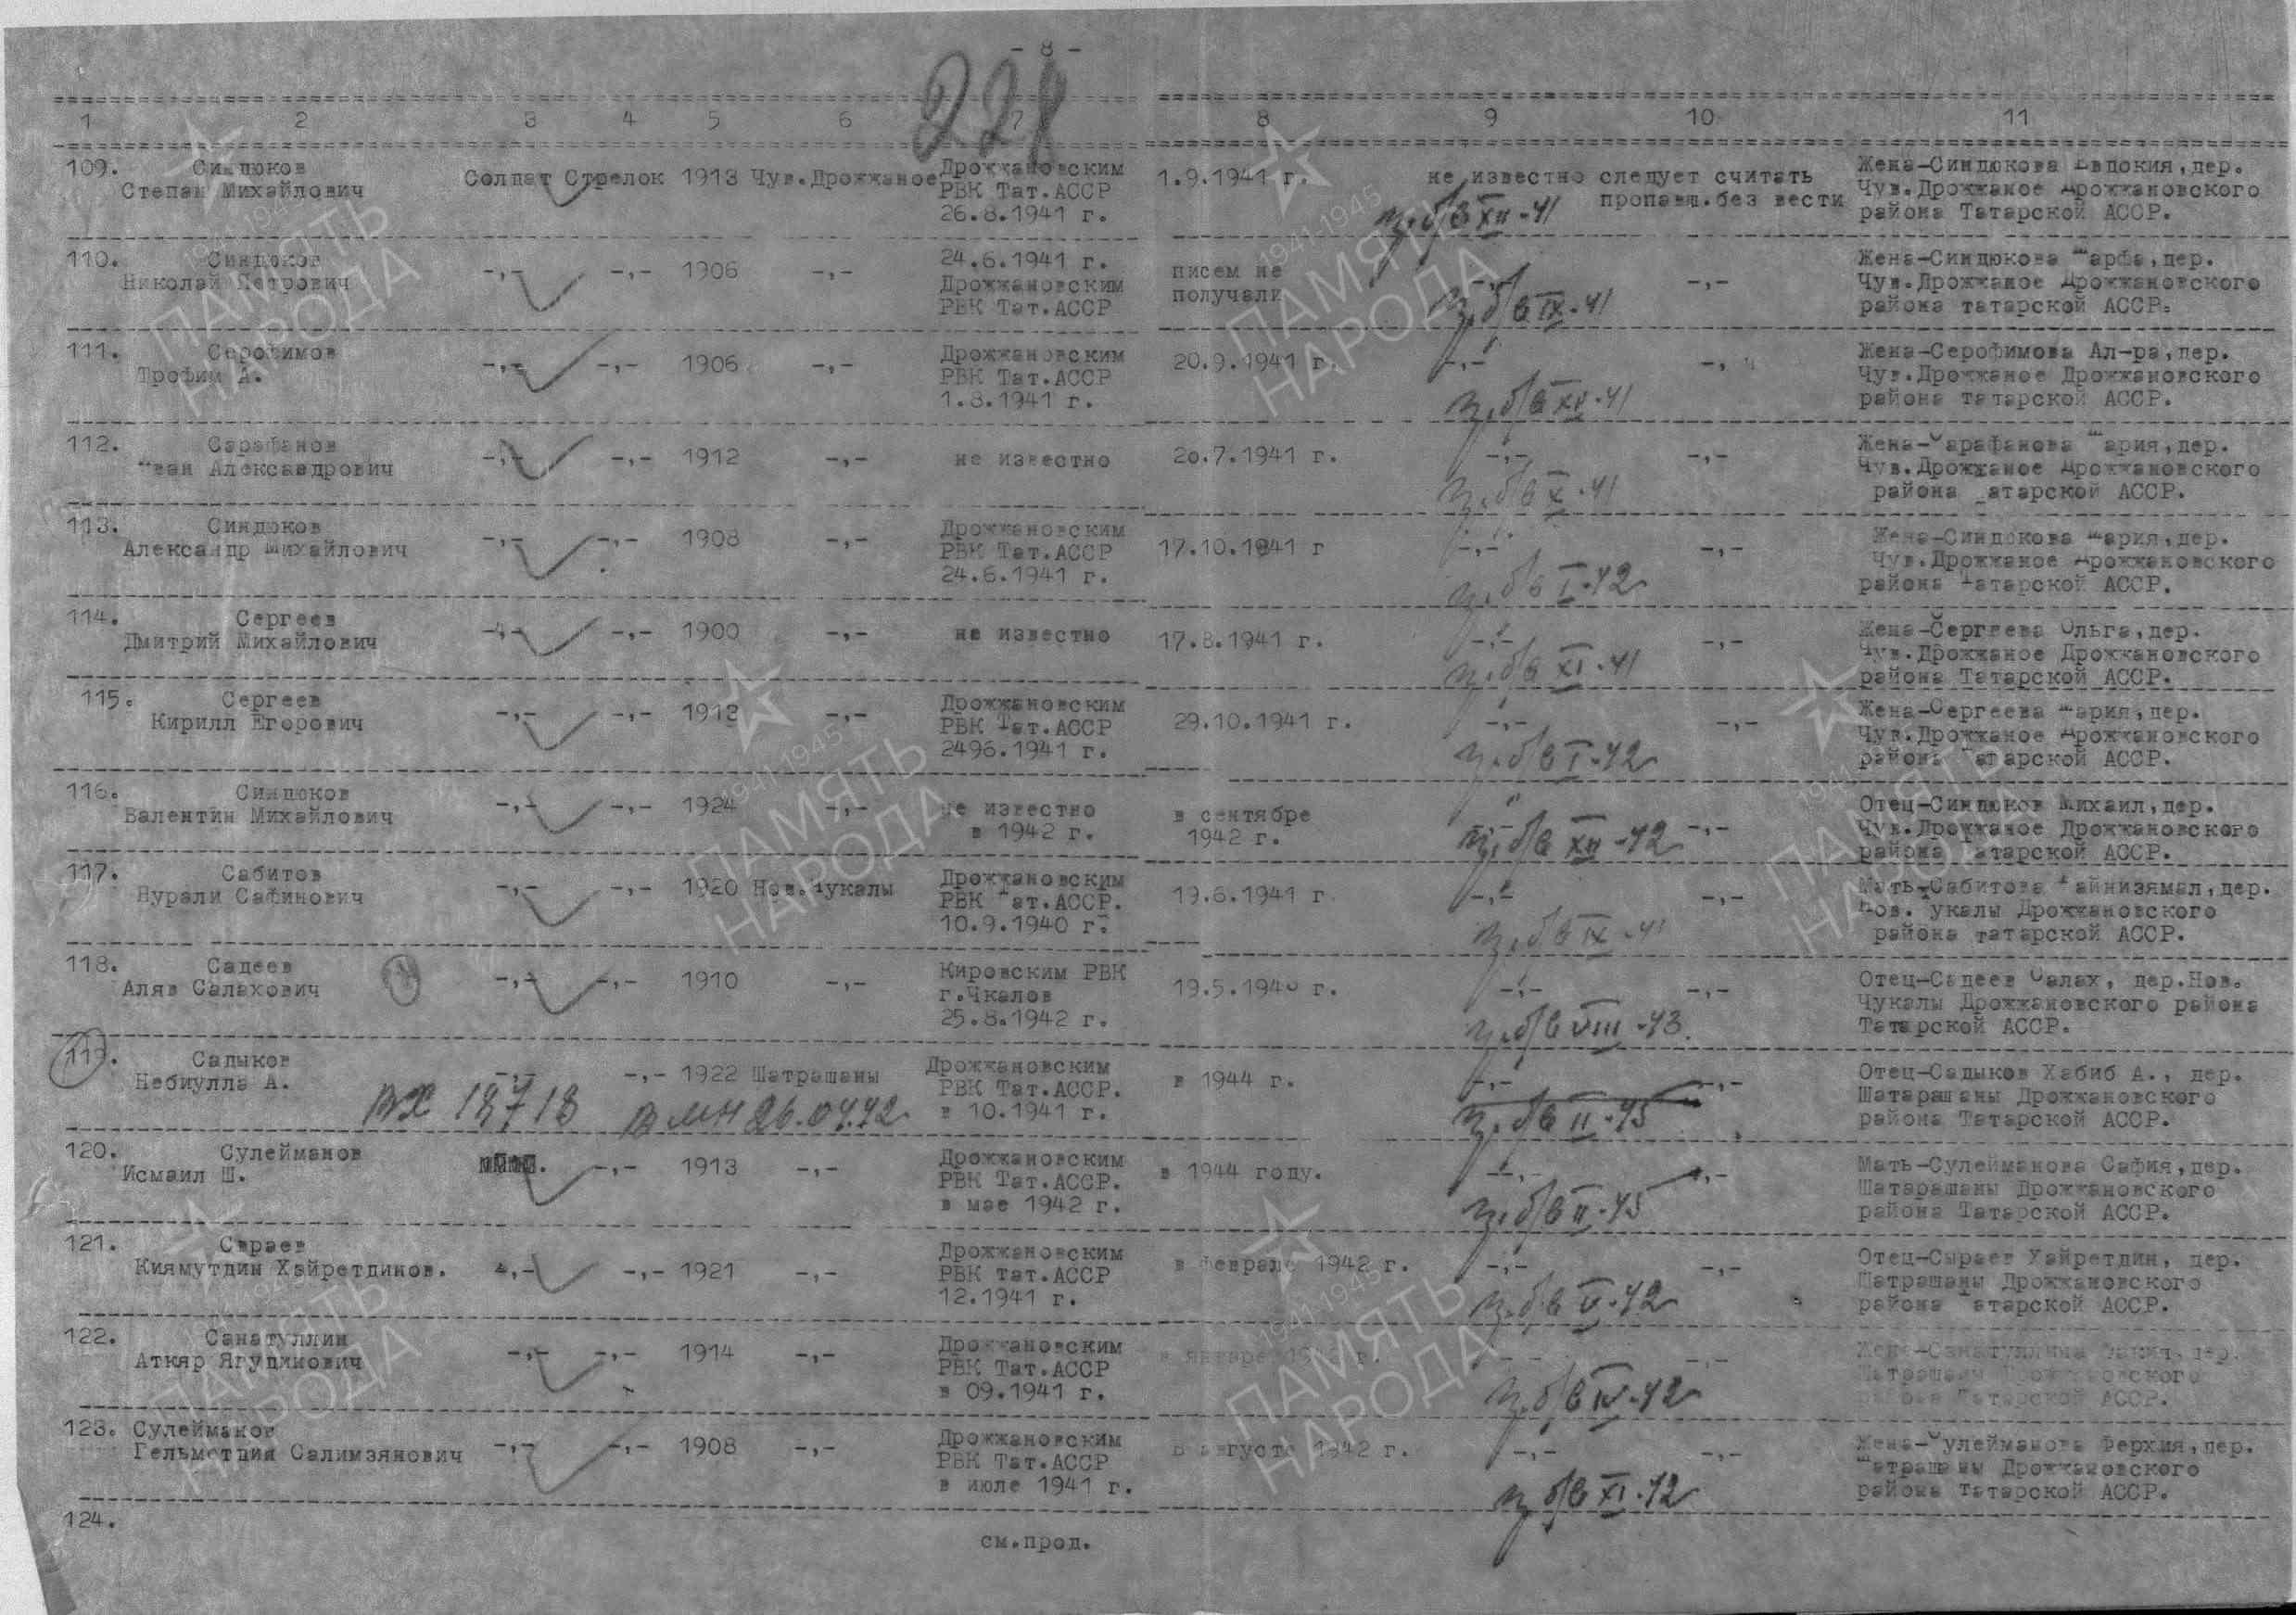 - 8 -
228
1 2 3 4 5 6 7 8 9 10 11
109. Синдюков Дрожжановским Жена-Синдюкова Евдокия, дер.
Степан Михайлович Солдат Стрелок 1913 Чув.Дрожжаное РВК Тат.АССР 1.9.1941 г. не известно следует считать Чув.Дрожжаное Дрожжановского
26.8.1941 г. пропавш.без вести района Татарской АССР.
п.б/в XII-41
110. Синдюков 24.6.1941 г. писем не Жена-Синдюкова Марфа, дер.
Николай Петрович -,,- -,,- 1906 -,,- Дрожжановским получали -,,- -,,- Чув.Дрожжаное Дрожжановского
РВК Тат.АССР района татарской АССР.
п.б/в IX-41
111. Серофимов Дрожжановским Жена-Серофимова Ал-ра, дер.
Трофим А. -,,- -,,- 1906 -,,- РВК Тат.АССР 20.9.1941 г. -,,- -,,- Чув.Дрожжаное Дрожжановского
1.8.1941 г. района татарской АССР.
п.б/в XII-41
112. Сарафанов Жена-Сарафанова Мария, дер.
Иван Александрович -,,- -,,- 1912 -,,- не известно 20.7.1941 г. -,,- -,,- Чув.Дрожжаное Дрожжановского
района Татарской АССР.
п.б/в X-41
113. Синдюков Дрожжановским Жена-Синдюкова Мария, дер.
Александр Михайлович -,,- -,,- 1908 -,,- РВК Тат.АССР 17.10.1941 г -,,- -,,- Чув.Дрожжаное Дрожжановского
24.6.1941 г. района Татарской АССР.
п.б/в I-42
114. Сергеев Жена-Сергеева Ольга, дер.
Дмитрий Михайлович -,,- -,,- 1900 -,,- не известно 17.8.1941 г. -,,- -,,- Чув.Дрожжаное Дрожжановского
района Татарской АССР.
п.б/в XI-41
115. Сергеев Дрожжановским Жена-Сергеева Мария, дер.
Кирилл Егорович -,,- -,,- 1913 -,,- РВК Тат.АССР 29.10.1941 г. -,,- -,,- Чув.Дрожжаное Дрожжановского
2496.1941 г. района Татарской АССР.
п.б/в I-42
116. Синдюков не известно в сентябре Отец-Синдюков Михаил, дер.
Валентин Михайлович -,,- -,,- 1924 -,,- в 1942 г. 1942 г. -,,- -,,- Чув.Дрожжаное Дрожжановского
района Татарской АССР.
п.б/в XII-42
117. Сабитов Дрожжановским Мать-Сабитова Зайнизямал, дер.
Нурали Сафинович -,,- -,,- 1920 Нов.Чукалы РВК Тат.АССР. 19.6.1941 г -,,- -,,- Нов.Чукалы Дрожжановского
10.9.1940 г. района татарской АССР.
п.б/в IX-41
118. Садеев Кировским РВК Отец-Садеев Салах, дер.Нов.
Аляв Салахович -,,- -,,- 1910 -,,- г.Чкалов 19.5.1940 г. -,,- -,,- Чукалы Дрожжановского района
25.8.1942 г. Татарской АССР.
п.б/в VIII-43
119. Садыков Дрожжановским Отец-Садыков Хабиб А., дер.
Небиулла А. -,,- -,,- 1922 Шатрашаны РВК Тат.АССР. в 1944 г. -,,- -,,- Шатарашаны Дрожжановского
в 10.1941 г. района Татарской АССР.
вх 18718 26.04.42 п.б/в II-45
120. Сулейманов Дрожжановским Мать-Сулейманова Сафия, дер.
Исмаил Ш. -,,- 1913 -,,- РВК Тат.АССР. в 1944 году. -,,- -,,- Шатарашаны Дрожжановского
в мае 1942 г. района Татарской АССР.
п.б/в II-45
121. Сираев Дрожжановским Отец-Сыраев Хайретдин, дер.
Киямутдин Хайретдинов. -,,- -,,- 1921 -,,- РВК тат.АССР в феврале 1942 г. -,,- -,,- Шатрашаны Дрожжановского
12.1941 г. района Татарской АССР.
п.б/в V-42
122. Санатуллин Дрожжановским Жена-Санатуллина дер.
Аткяр Ягудинович -,,- -,,- 1914 -,,- РВК Тат.АССР в январе г. -,,- -,,- Шатрашаны Дрожжановского
в 09.1941 г. района Татарской АССР.
п.б/в IV-42
123. Сулейманов Дрожжановским Жена-Сулейманова Ферхия, дер.
Гельметдин Салимзянович -,,- -,,- 1908 -,,- РВК Тат.АССР в августе 1942 г. -,,- -,,- Шатрашаны Дрожжановского
в июле 1941 г. района Татарской АССР.
п.б/в XI-42
124.
см.прод.
1941-1945
ПАМЯТЬ
НАРОДА
1941-1945
ПАМЯТЬ
НАРОДА
1941-1945
ПАМЯТЬ
НАРОДА
1941-1945
ПАМЯТЬ
НАРОДА
1941-1945
ПАМЯТЬ
НАРОДА
1941-1945
ПАМЯТЬ
НАРОДА